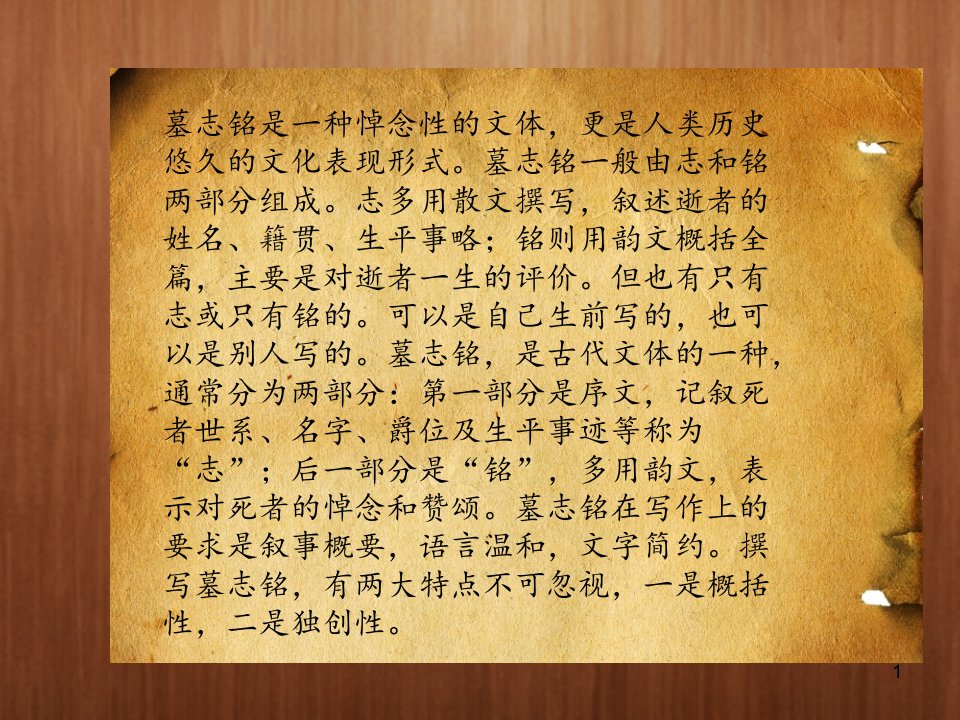 墓志铭是一种悼念性的文体，更是人类历史
悠久的文化表现形式。墓志铭一般由志和铭
两部分组成。志多用散文撰写，叙述逝者的
姓名、籍贯、生平事略；铭则用韵文概括全
篇，主要是对逝者一生的评价。但也有只有
志或只有铭的。可以是自己生前写的，也可
以是别人写的。墓志铭，是古代文体的一种，
通常分为两部分：第一部分是序文，记叙死
者世系、名字、爵位及生平事迹等称为
“志”；后一部分是“铭”，多用韵文，表
示对死者的悼念和赞颂。墓志铭在写作上的
要求是叙事概要，语言温和，文字简约。撰
写墓志铭，有两大特点不可忽视，一是概括
性，二是独创性。
1